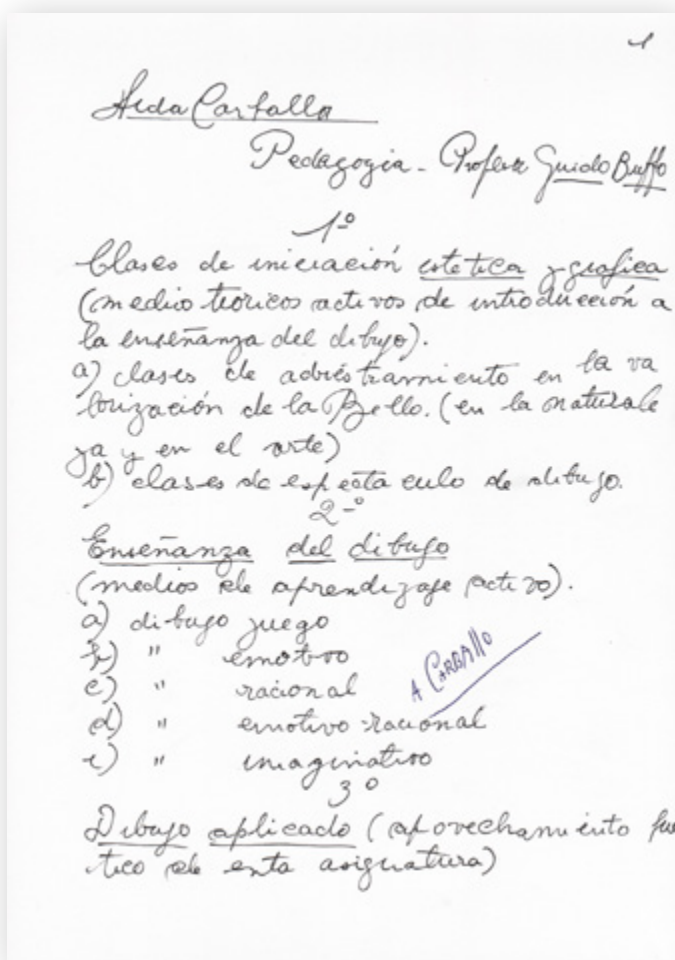 1
Aida Carballo
Pedagogia - Profesor Guido Buffo
1º
Clases de iniciación estetica y grafica
(medio teoricos activos de introducción a
la enseñanza del dibujo).
a) clases de adiestramiento en la va
lorización de lo Bello. (en la naturale
za y en el arte)
b) clases de espectaculo de dibujo.
2º
Enseñanza del dibujo
(medios de aprendizaje activo).
a) dibujo juego
b) " emotivo
c) " racional
A CARBALLO
d) " emotivo-racional
e) " imaginativo
3º
Dibujo aplicado (aprovechamiento
tico de esta asignatura)